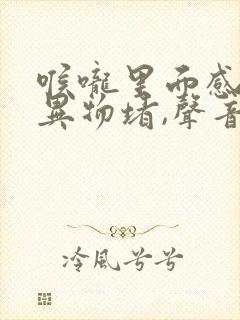 喉嚨里面感
異物堵,聲音
冷風兮兮